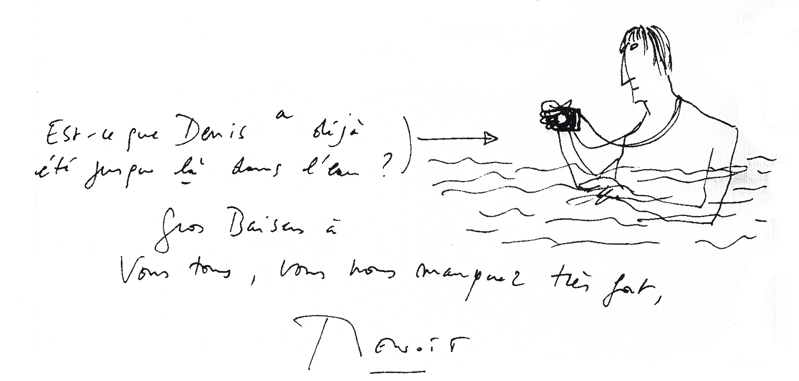 Est-ce que Denis a déjà
été jusque là dans l'eau ?
Gros Baisers à
Vous tous, vous nous manquez très fort,
Benoît